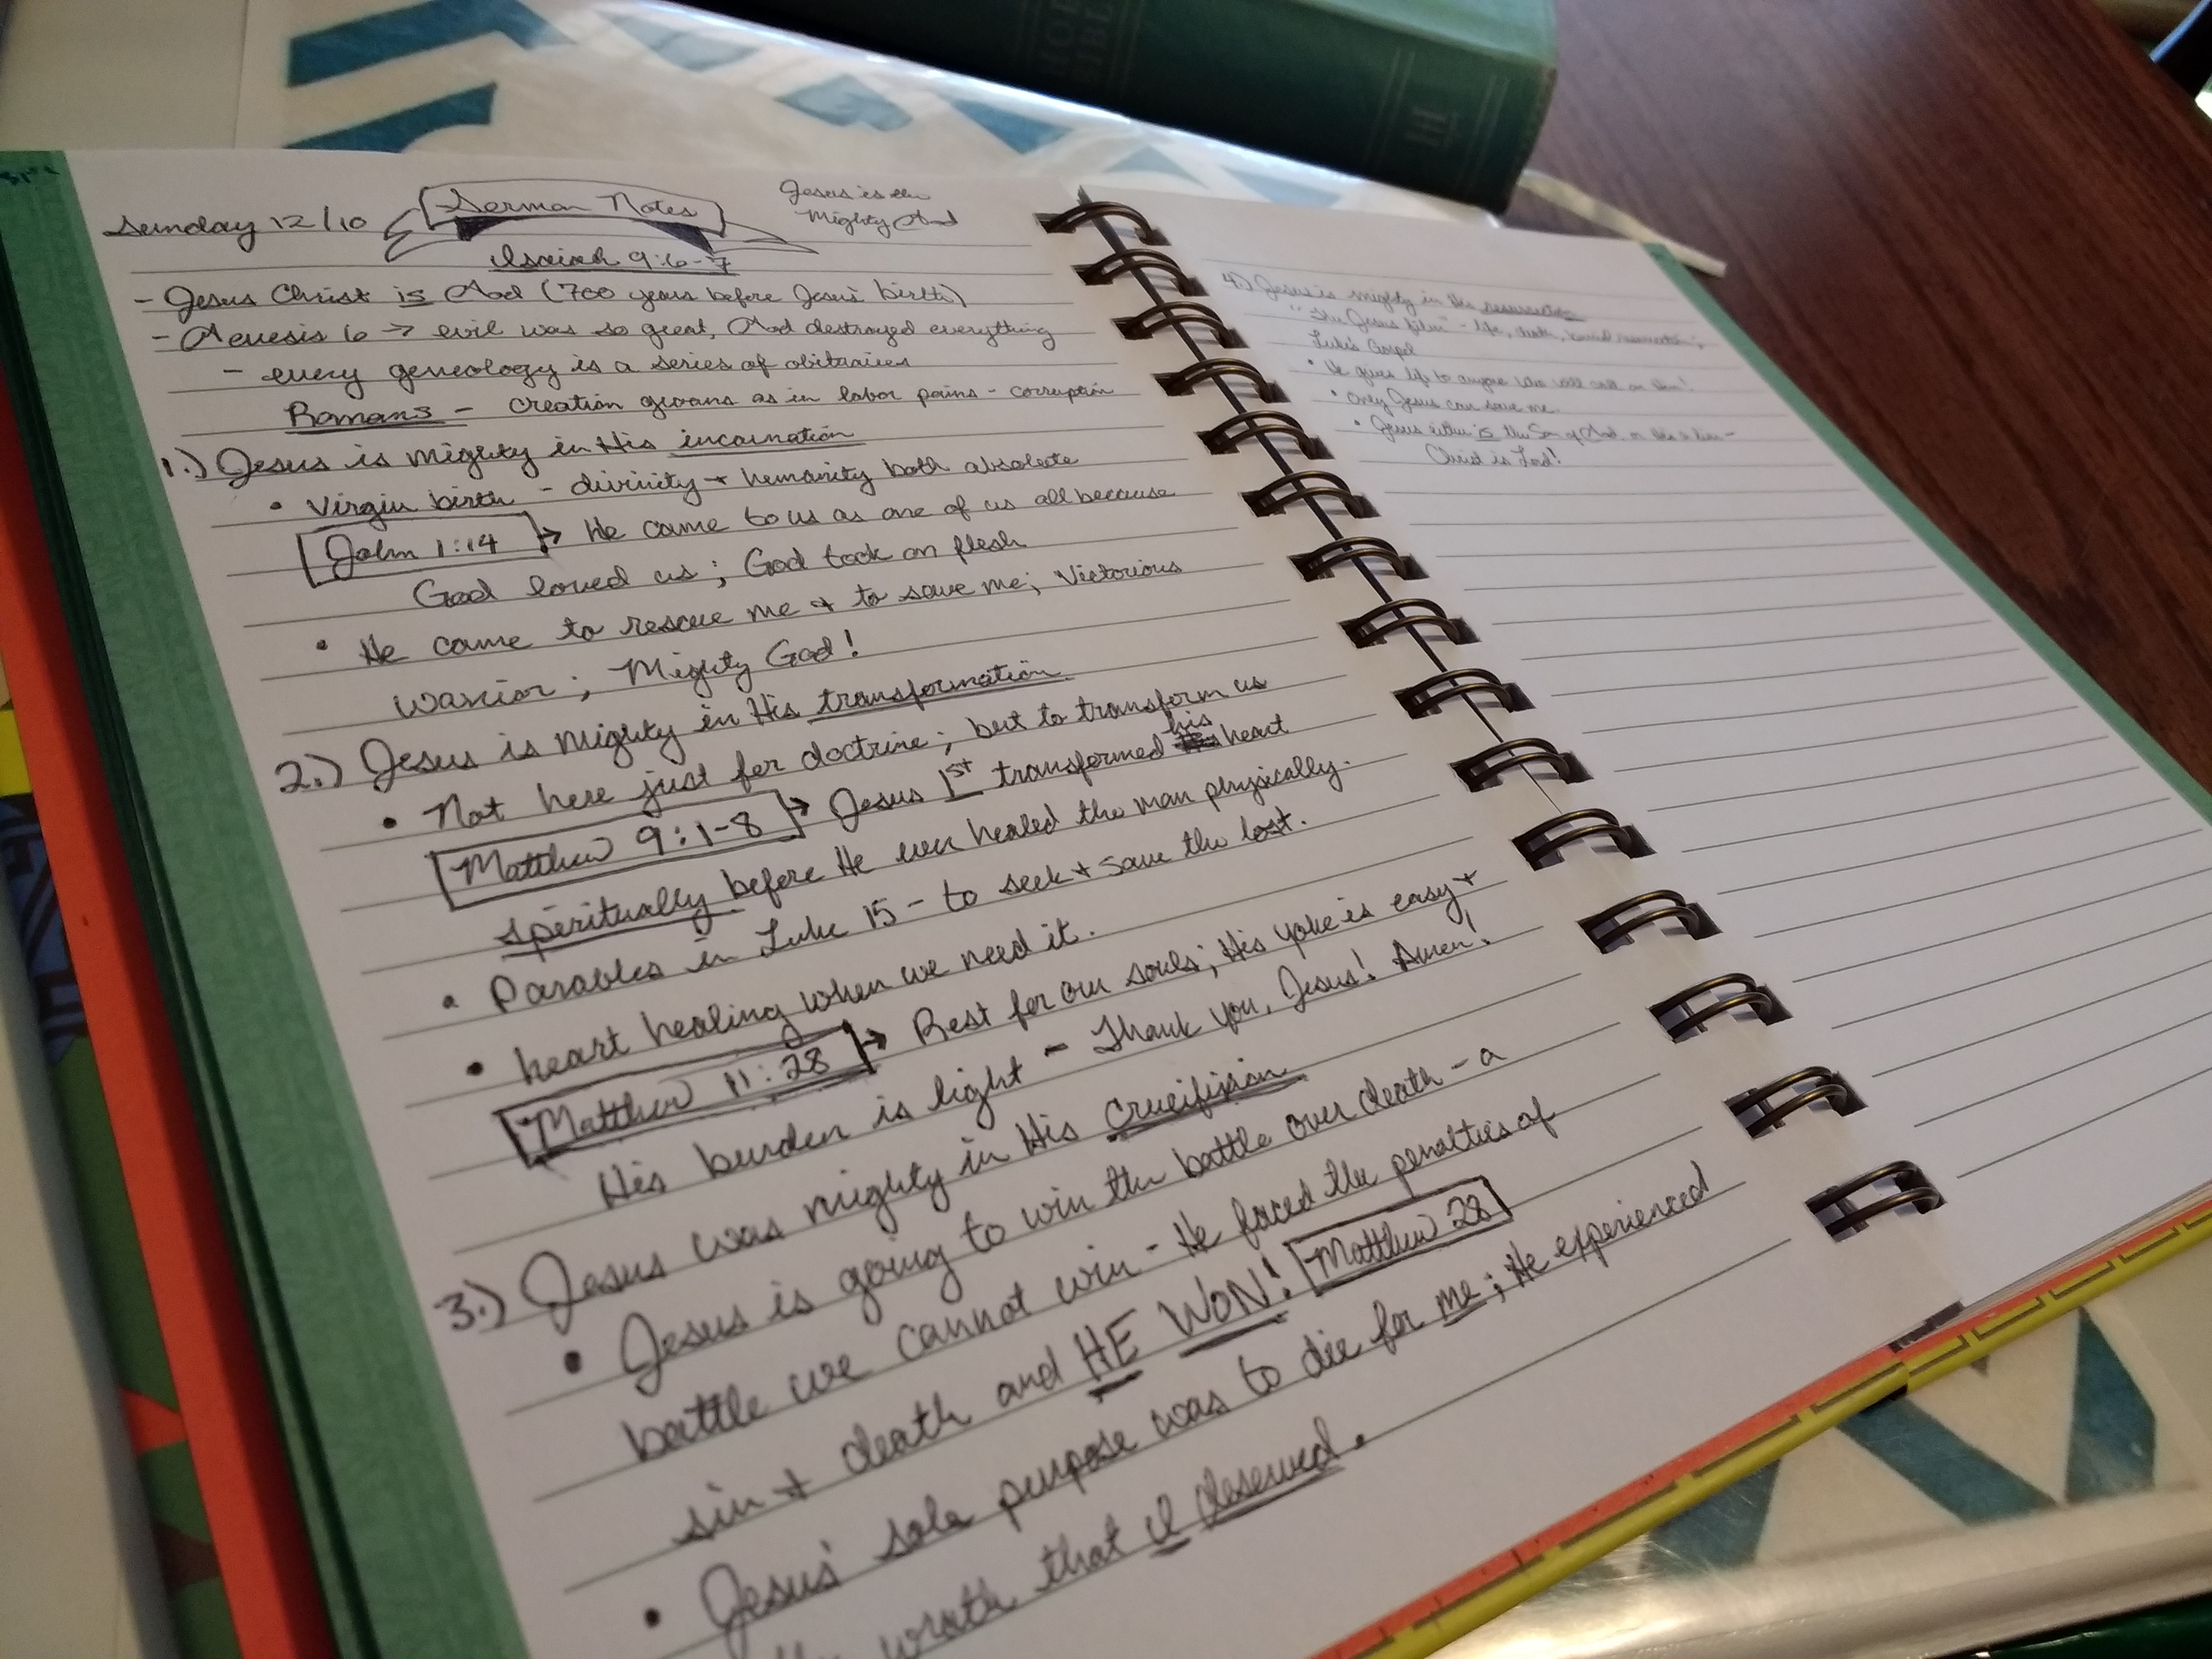 Sunday 12/10
Sermon Notes
Jesus is the
Mighty God
Isaiah 9:6-7
- Jesus Christ is God (700 years before Jesus' birth)
- Genesis 6 → evil was so great, God destroyed everything
- every geneology is a series of obituaries
Romans - creation groans as in labor pains - corruption
1.) Jesus is mighty in His incarnation
• Virgin birth - divinity + humanity both absolute
John 1:14 → He came to us as one of us all because
God loved us; God took on flesh
• He came to rescue me + to save me; Victorious
warrior; Mighty God!
2.) Jesus is mighty in His transformation.
• Not here just for doctrine; but to transform us
Matthew 9:1-8 → Jesus 1st transformed his heart
spiritually before He ever healed the man physically.
• Parables in Luke 15 - to seek + save the lost.
• heart healing when we need it.
Matthew 11:28 → Rest for our souls; His yoke is easy +
His burden is light - Thank you, Jesus! Amen!
3.) Jesus was mighty in His crucifixion
• Jesus is going to win the battle over death - a
battle we cannot win - He faced the penalties of
sin + death and HE WON! Matthew 28
• Jesus' sole purpose was to die for me; He experienced
wrath that I deserved.
4.) Jesus is mighty in His resurrection
"The Jesus film" - life, death, burial, resurrection;
Luke's Gospel
• He gives life to anyone who will call on Him!
• Only Jesus can save me.
• Jesus either is the Son of God or He's a liar -
Christ is Lord!
HOLY
BIBLE